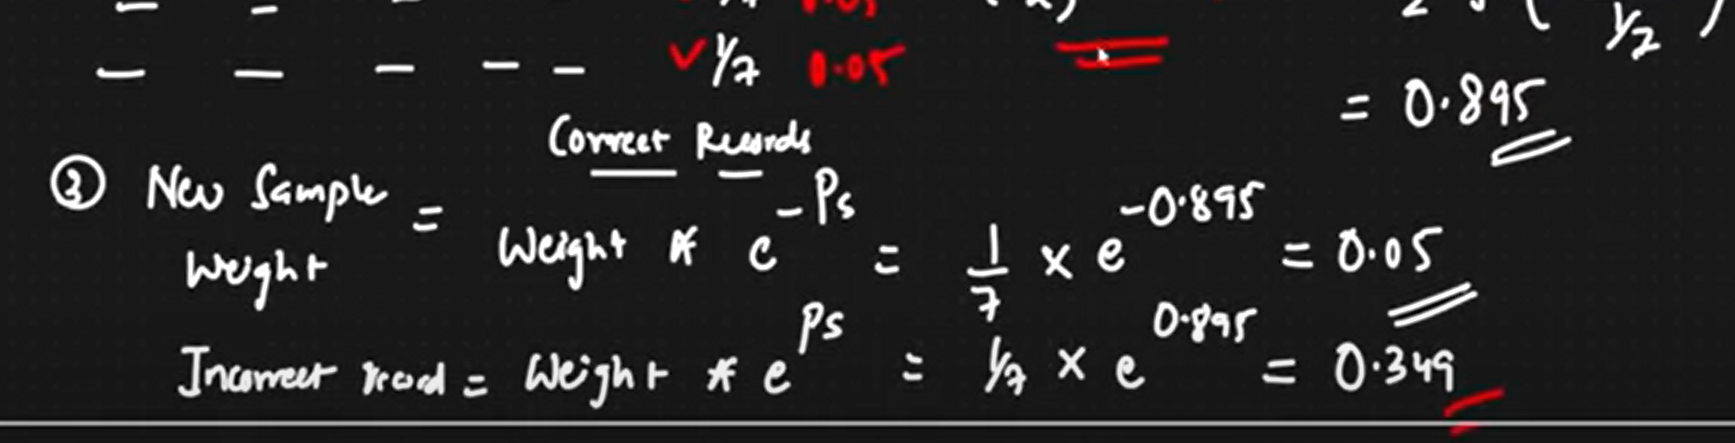 ✓ 1/7 0.05
1/2 )
= 0.895
Correct Records
③ New Sample Weight = Weight * e^-Ps = 1/7 × e^-0.895 = 0.05
Incorrect = Weight * e^Ps = 1/7 × e^0.895 = 0.349